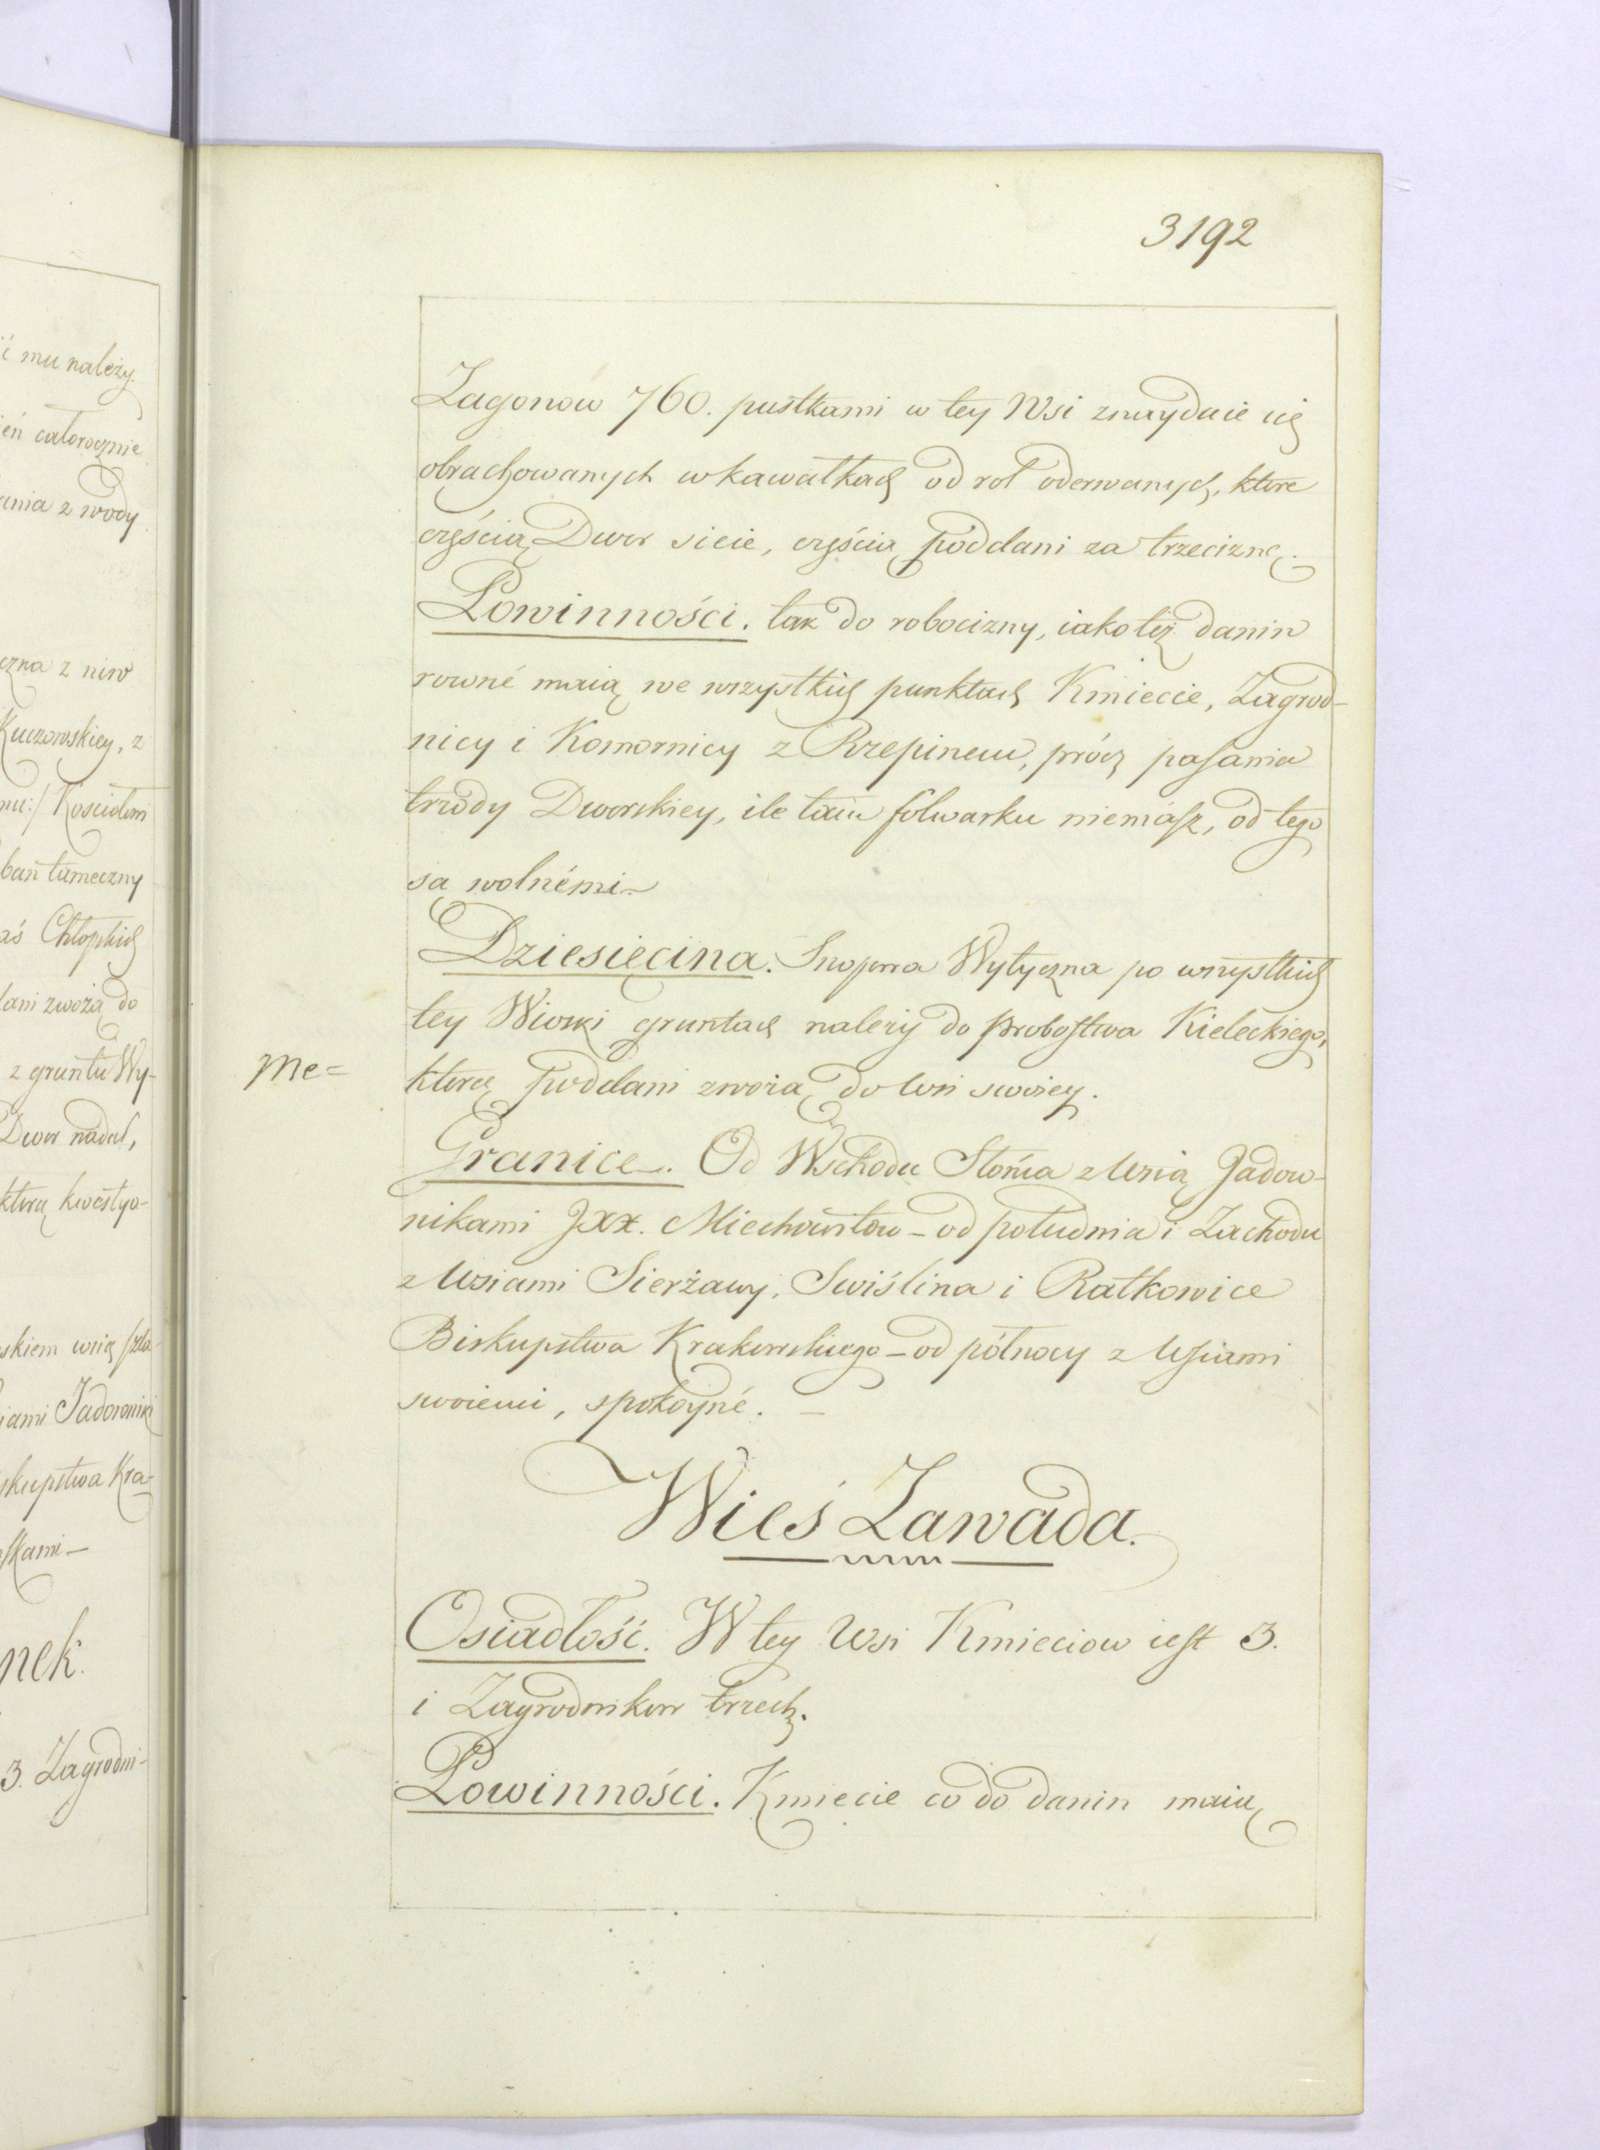 ć mu należy.
całorocznie
ania z wody
czna z niw
Kuczowskiey, z
mu:/ Kosciołem
tameczny
aś Chłopskich
dani zwożą do
z gruntu Wy-
Dwor nadał,
ktorą kwestyo-
skiem wsią
iami Jadowniki
skupstwa Kra-
skami —
nek.
3. Zagrodni-
3192
Zagonow 760. pustkami w tey Wsi znayduie się
obrachowanych w kawałkach od rol oderwanych, ktore
częścią Dwor sieie, częścią poddani za trzeciznę.
Powinności. tak do robocizny, iako też danin
rowné maią we wszystkich punktach Kmiecie, Zagrod-
nicy i Komornicy z Rzepinem, prócz pasania
trzody Dworskiey, ile tam folwarku niemasz, od tego
są wolnémi –
Dziesięcina. Snopowa Wytyczna po wszystkich
tey Wioski gruntach należy do probostwa Kieleckiego,
Me=
ktorą poddani zwożą do wsi swoiey.
Granice. Od Wschodu Słońca z Wsią Jadow-
nikami JXX. Miechowitow – od południa i Zachodu
z Wsiami Sierżawy, Swiślina i Ratkowice
Biskupstwa Krakowskiego – od północy z Wsiami
swoiemi, spokoyné. –
Wieś Zawada.
Osiadłość. W tey Wsi Kmieciow iest 3.
i Zagrodnikow trzech.
Powinności. Kmiecie co do danin maią